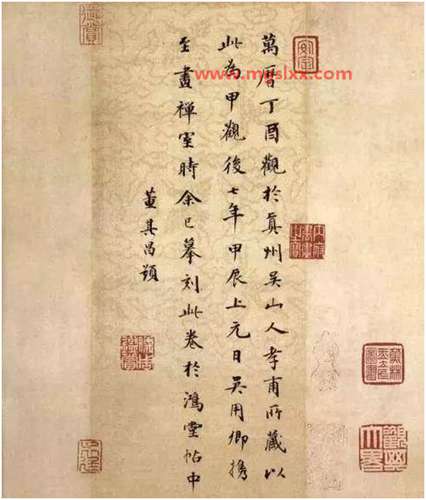 萬曆丁酉觀於真州吳山人孝甫所藏以
此為甲觀後七年甲辰上元日吳用卿攜
至畫禪室時余已摹刻此卷於鴻堂帖中
董其昌題
www.mesixx.com